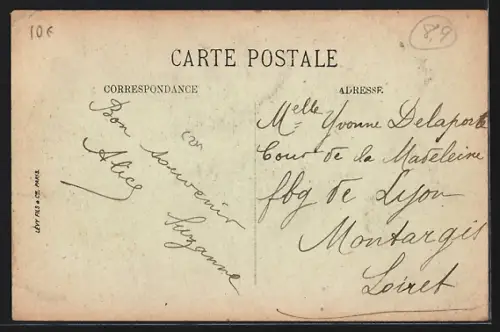 10€
89
CARTE POSTALE
CORRESPONDANCE
ADRESSE
Bon souvenir
Alice
Suzanne
LÉVY FILS & Cie, PARIS
Melle Yvonne Delaporte
Cour de la Madeleine
fbg de Lyon
Montargis
Loiret